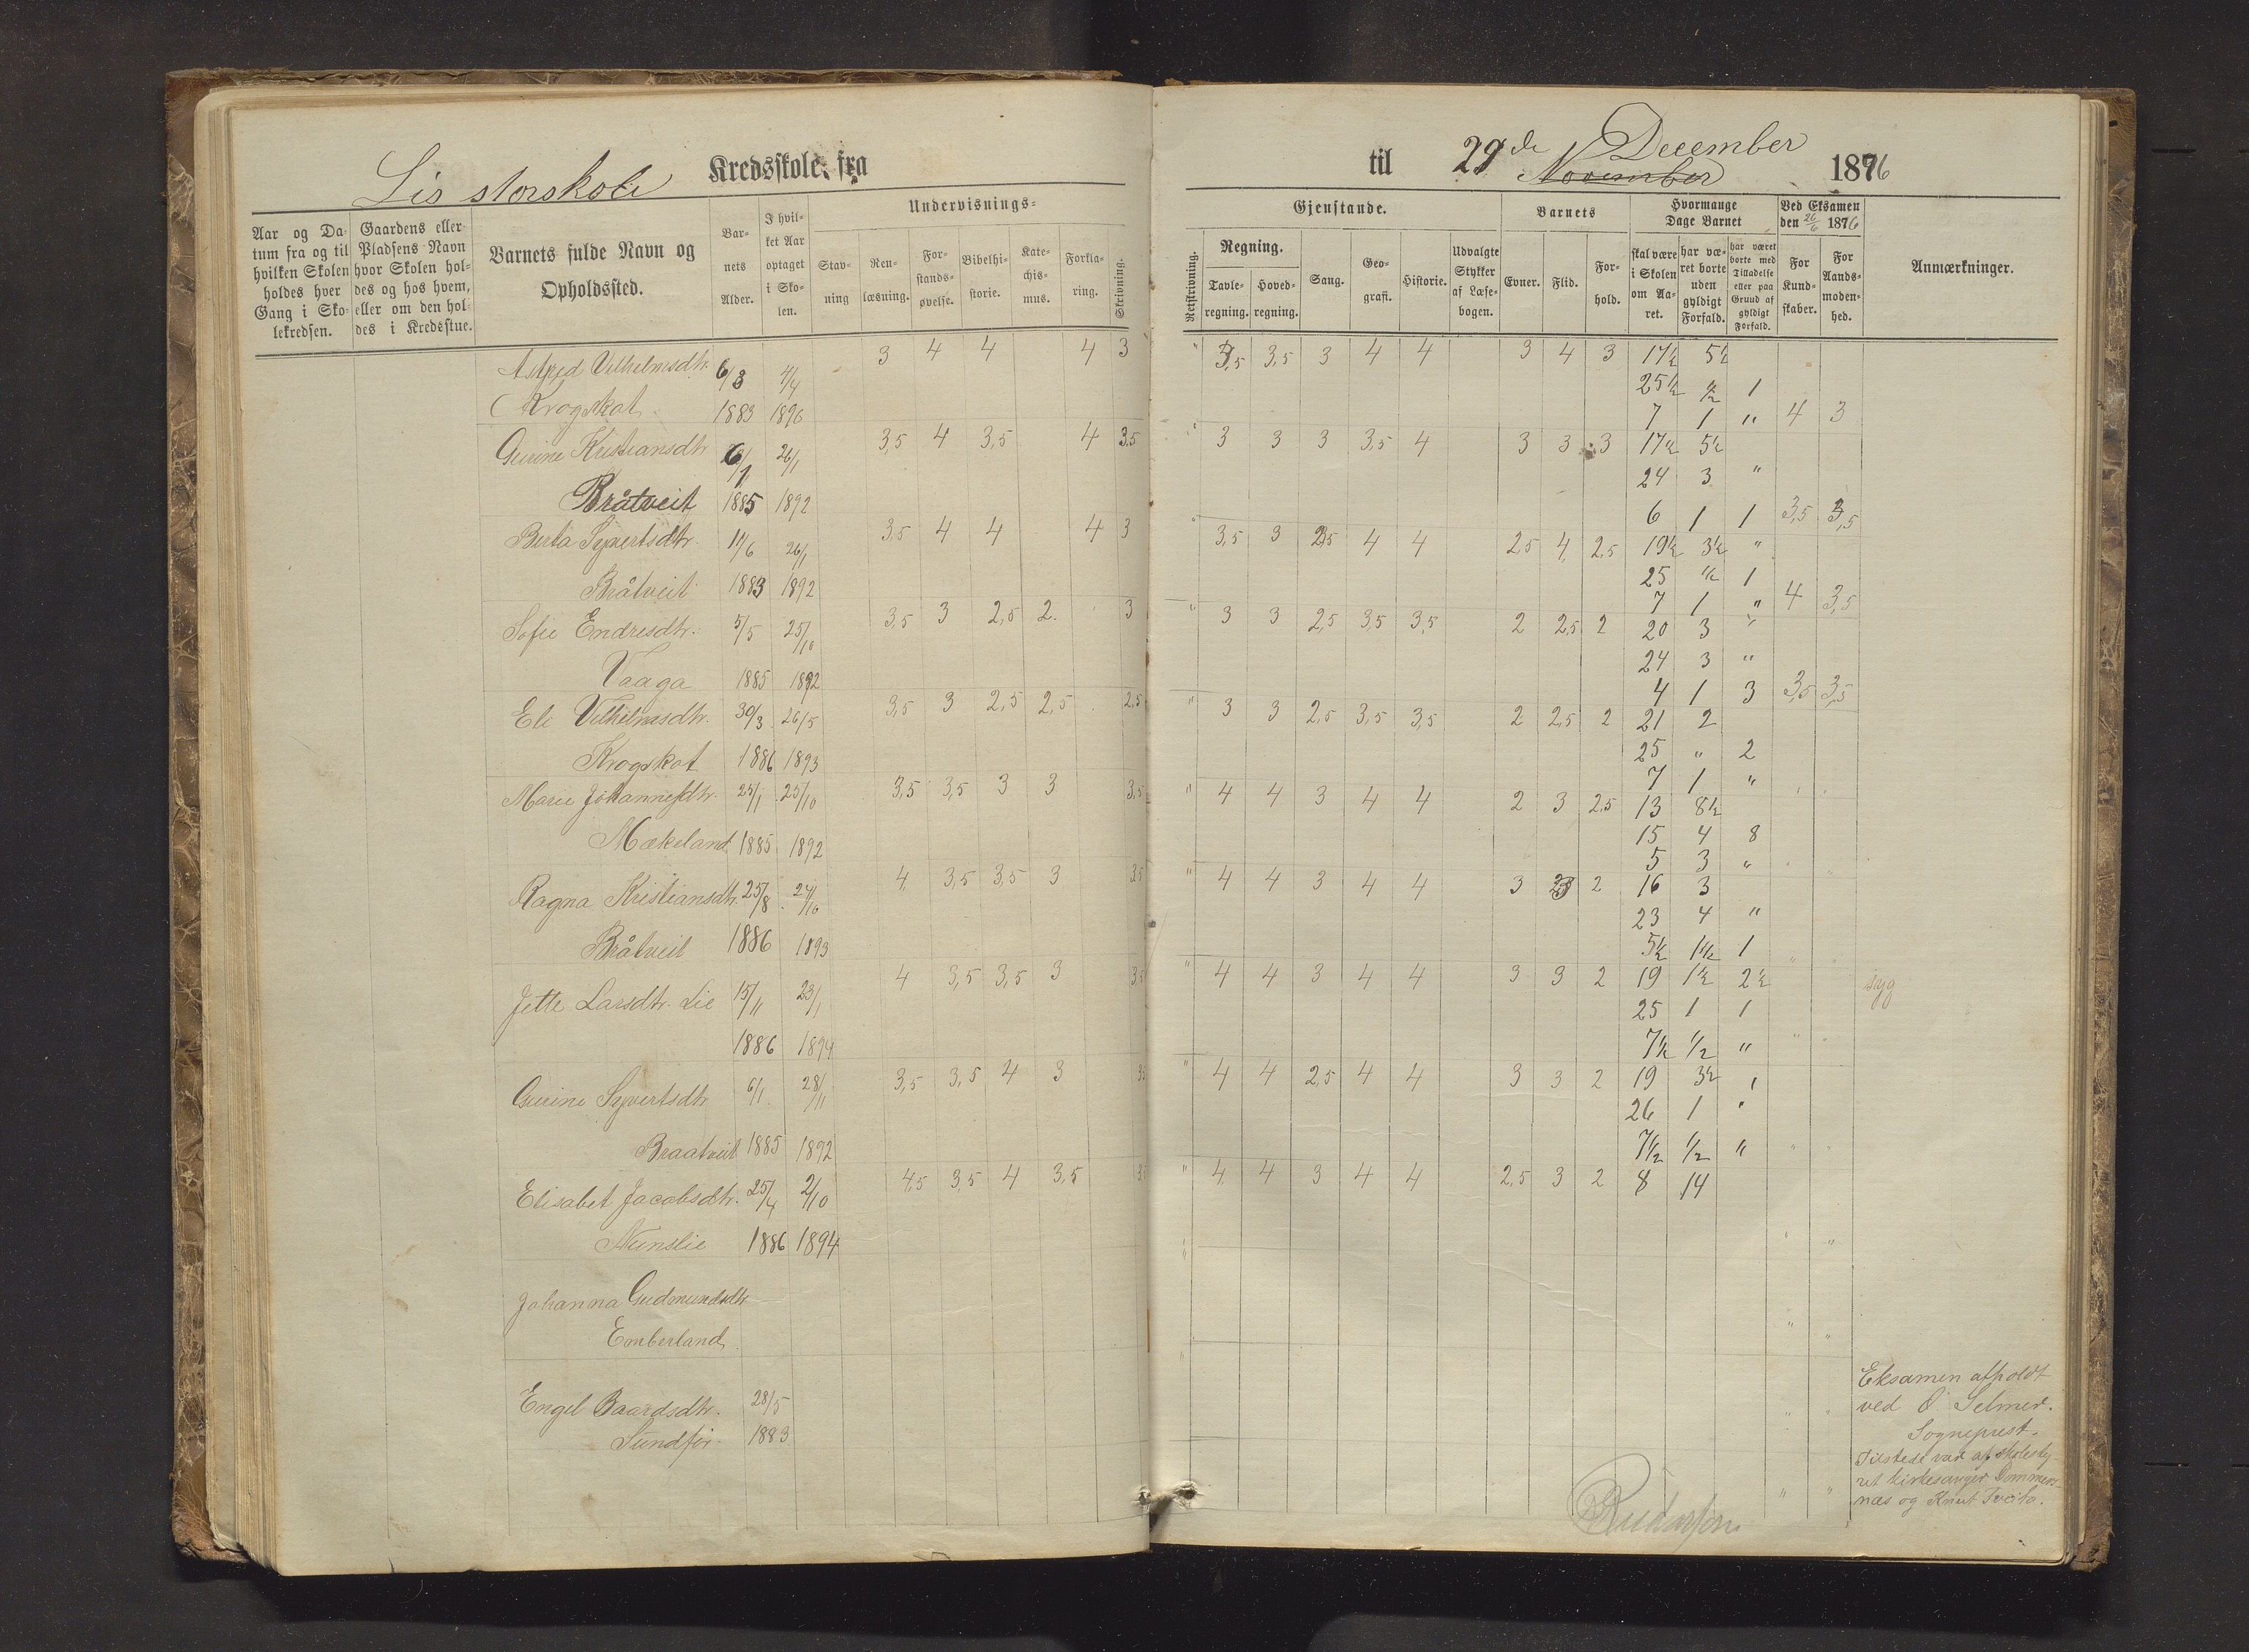 Lis storskole Kredsskole, fra
Undervisnings-
Aar og Da-
tum fra og til
hvilken Skolen
holdes hver
Gang i Sko-
lekredsen.
Gaardens eller
Pladsens Navn
hvor Skolen hol-
des og hos hvem,
eller om den hol-
des i Kredsstue.
Barnets fulde Navn og
Opholdssted.
Bar-
nets
Alder.
I hvil-
ket Aar
optaget
i Sko-
len.
Stav-
ning
Ren-
læsning.
For-
stands-
øvelse.
Bibelhi-
storie.
Kate-
chis-
mus.
Forkla-
ring.
Skrivning.
Astrid Vilhelmsdtr. 6/3 4/4 3 4 4 4 3
Krogskot 1883 1890
Gurine Kristiansdtr 6/1 26/1 3,5 4 3,5 4 3,5
Bråtveit 1885 1892
Berta Syvertsdtr. 11/6 26/1 3,5 4 4 4 3
Bråtveit 1883 1892
Sofie Endresdtr. 5/5 25/10 3,5 3 2,5 2 3
Vaaga 1885 1892
Eli Vilhelmsdtr. 30/3 26/5 3,5 3 2,5 2,5 2,5
Krogskot 1886 1893
Marie Johannesdtr. 25/10 3,5 3,5 3 3 3,5
Mækeland 1885 1892
Ragna Kristiansdtr. 25/8 24/10 4 3,5 3,5 3 3,5
Bråtveit 1886 1893
Jette Larsdtr. Lie 15/11 23/1 4 3,5 3,5 3 3,5
1886 1894
Gurine Syvertsdtr 6/1 28/11 3,5 3,5 4 3
Braatveit 1885 1892
Elisabet Jacobsdtr. 25/4 2/10 4,5 3,5 4 3,5
Nunslie 1886 1894
Johanna Gudmundsdtr
Emberland
Engel Baardsdtr. 28/5
Sundfør 1883
til 29de December
November 1896
Gjenstande.
Barnets
Hvormange
Dage Barnet
Ved Eksamen
den 26/6 1876
Retskrivning.
Regning.
Tavle-
regning.
Hoved-
regning.
Sang.
Geo-
grafi.
Historie.
Udvalgte
Stykker
af Læse-
bogen.
Evner.
Flid.
For-
hold.
skal være
i Skolen
om Aa-
ret.
har væ-
ret borte
uden
gyldigt
Forfald.
har været
borte med
Tilladelse
eller paa
Grund af
gyldigt
Forfald.
For
Kund-
skaber.
For
Aands-
moden-
hed.
Anmærkninger.
" 3,5 3,5 3 4 4 3 4 3 17½ 5½
25½ ½ 1
7 1 " 4 3
" 3 3 3 3,5 4 3 3 3 17½ 5½
24 3 "
6 1 1 3,5 3,5
" 3,5 3 2,5 4 4 2,5 4 2,5 19½ 3½ "
25 ½ 1
7 1 " 4 3,5
" 3 3 2,5 3,5 3,5 2 2,5 2 20 3 "
24 3 "
4 1 3 3,5 3,5
" 3 3 2,5 3,5 3,5 2 2,5 2 21 2
25 " 2
7 1 "
" 4 4 3 4 4 2 3 2,5 13 8½
15 4 8
5 3 "
" 4 4 3 4 4 3 3 2 16 3
23 4 "
5½ 1½ 1
" 4 4 3 4 4 3 3 2 19 1½ 2½ syg
25 1 1
7½ ½ "
" 4 4 2,5 4 4 3 3 2 19 3½ "
26 1 "
7½ ½ "
" 4 4 3 4 4 2,5 3 2 8 14
Eksamen afholdt
ved O Selmer.
Sogneprest.
Tilstede var af skolesty-
ret kirkesanger Dommers-
næs og Knut Tveita.